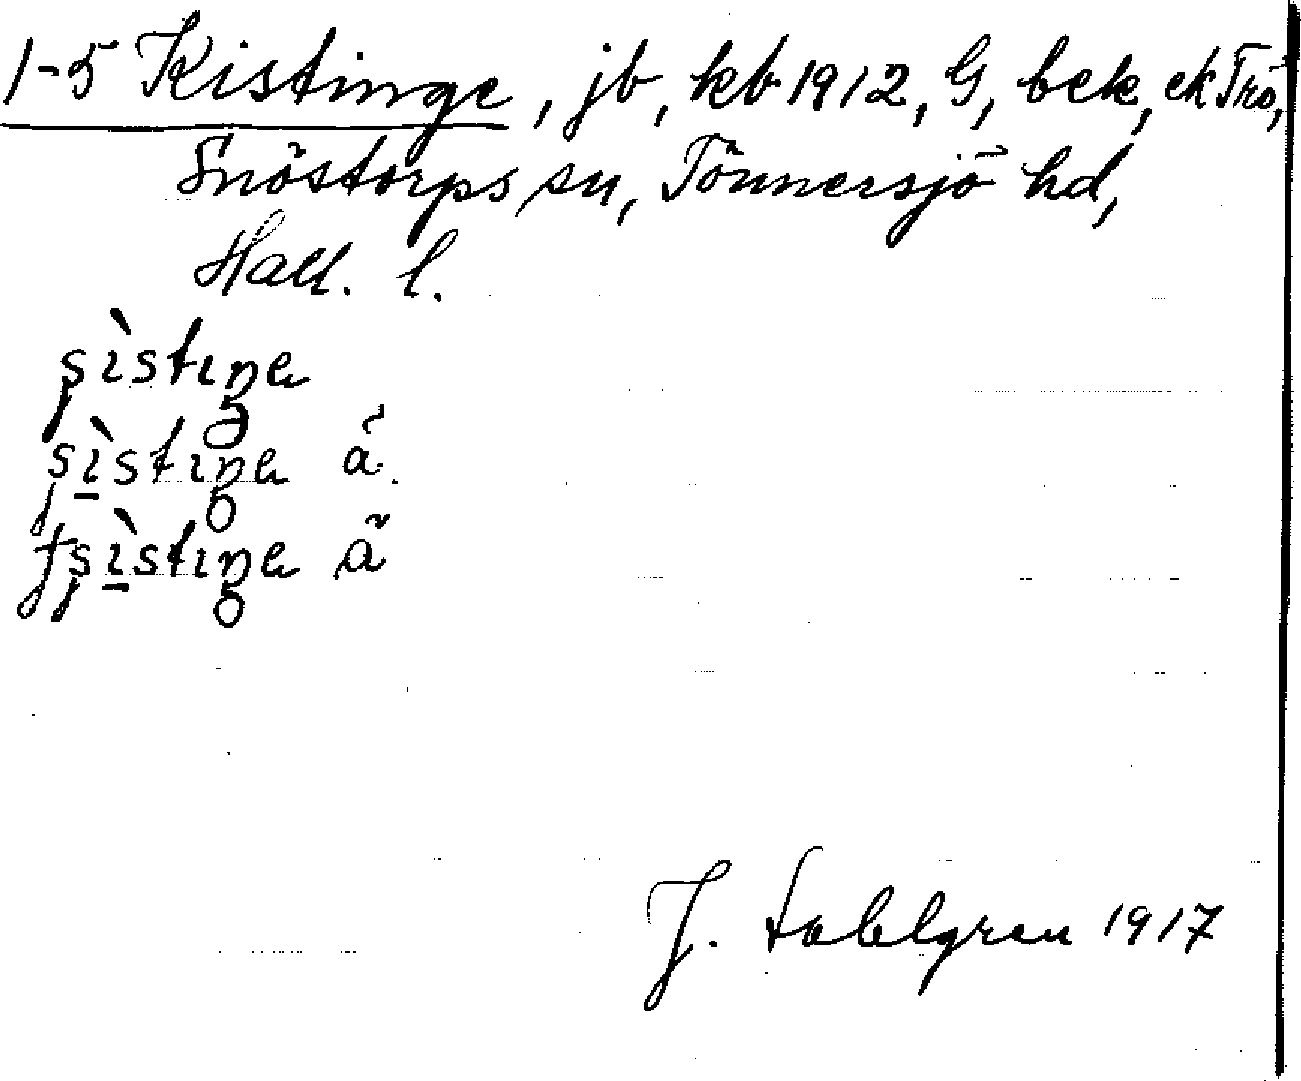 1-5 Kistinge, jb, kb 1912, G, bek, ek Trö,
Snöstorps sn, Tönnersjö hd,
Hall. l.
ʂìstiŋe
ʂìstiŋe á.
tʂìstiŋe ã
J. Sahlgren 1917